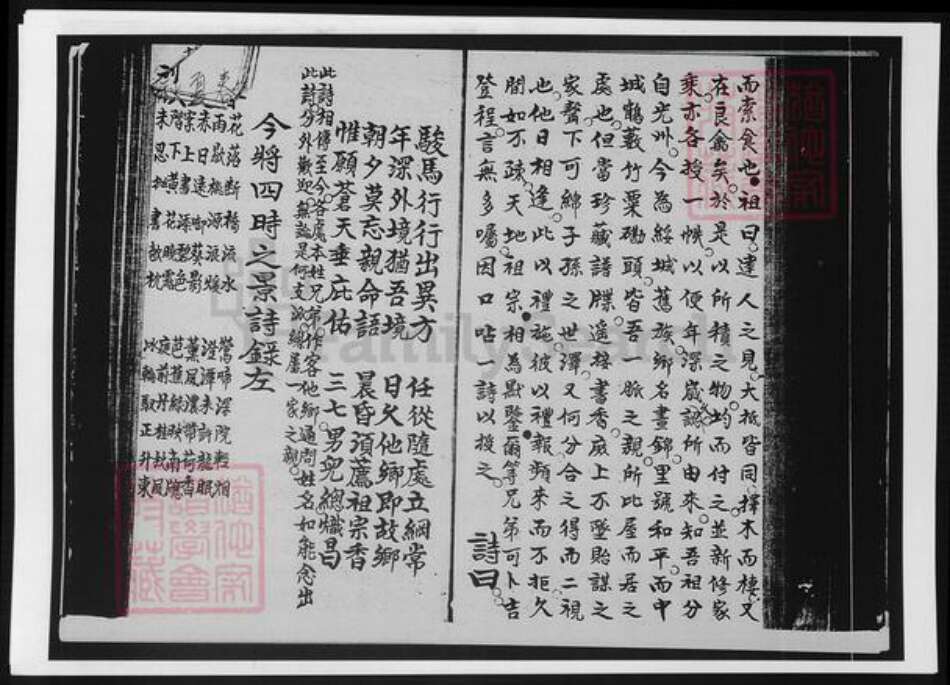 而索食也祖曰達人之見大抵皆同擇木而棲又
在良禽矣於是以所積之物均而付之並新修家
乘亦各授一帙以便年深歲認所由來知吾祖分
自光州今為綏城舊族鄉名晝錦里號和平而中
城鶴藪竹粟磡頭皆吾一脈之親所比屋而居之
處也但當珍藏譜牒遥接書香庶上不墜貽謀之
家聲下可綿子孫之世澤又何分合之得而二視
也他日相逢此以禮施彼以禮報頻來而不拒久
間如不疎天地祖宗相為默鑒爾等兄弟可卜吉
登程言無多囑因口呫一詩以授之
詩曰
駿馬行行出異方 任從隨處立綱常
年深外境猶吾境 日久他鄉即故鄉
朝夕莫忘親命語 晨昏須薦祖宗香
惟願蒼天垂庇佑 三七男兒總熾昌
此詩相傳至今各處本姓兄弟作客他鄉通問姓名如能念出
此詩分外歡迎無論是何支派總屬一家之親
今將四時之景詩錄左
花落斷橋流水 鶯啼深院輕烟
雨歇桃源浪煖 澄潭未許龍眠
赤日遠 葵影 薰風濃帶荷香
案上書 色 芭蕉綠映南牕
階下 花 晚 庭前丹桂 風
未忍 書 枕 冰輪馭正升東
FamilySearch